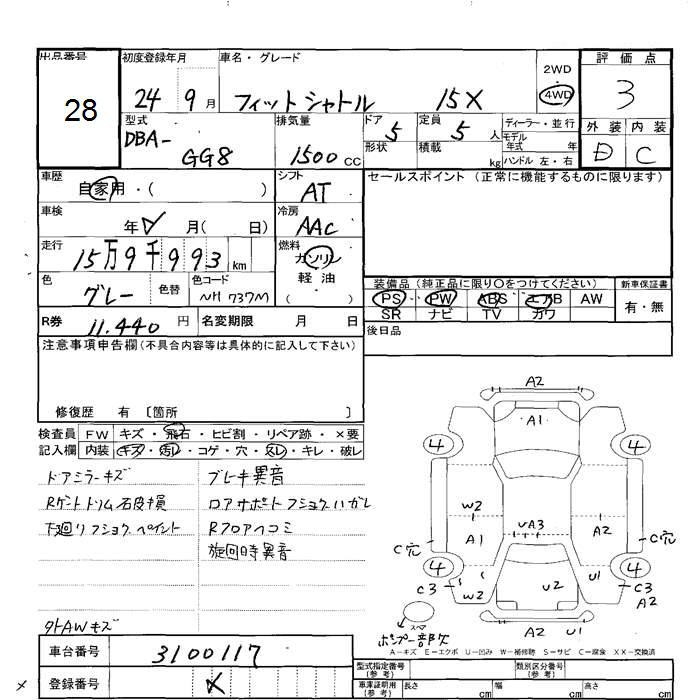 出品番号 28
初度登録年月 24 9月
車名・グレード フィットシャトル 15X
2WD 4WD
評価点 3
外装 D 内装 C
型式 DBA- GG8
排気量 1500 cc
ドア 5 形状
定員 5人 積載 kg
ディーラー・並行
モデル年式 年
ハンドル 左・右
車歴 自家用・( )
シフト AT
セールスポイント (正常に機能するものに限ります)
車検 年 月( 日)
冷房 AAC
走行 15万9千993km
燃料 ガソリン 軽油 ( )
色 グレー 色替 色コード NH 737M
装備品 (純正品に限り〇をつけてください) 新車保証書
PS PW ABS エアB AW 有・無
SR ナビ TV カワ
R券 11,440円 名変期限 月 日
後日品
注意事項申告欄(不具合内容等は具体的に記入して下さい)
修復歴 有 〔箇所 〕
検査員 FW キズ・飛石・ヒビ割・リペア跡・×要
記入欄 内装 キズ・汚レ・コゲ・穴・スレ・キレ・破レ
ドアミラーキズ ブレーキ異音
ロアサポートフショク ハガレ
下廻リフショク ペイント Rフロアヘコミ
旋回時異音
外AWキズ
A2
A1
4 4
W2
UA3
A1 A2
C穴 C穴
4 4
C3 W2 U2 U1 C3
A2
A2 U1
スペア
A-キズ E-エクボ U-凹み W-補修跡 S-サビ C-腐食 XX-交換済
車台番号 3100117
登録番号
型式指定番号(参考) 類別区分番号(参考)
車庫証明用(参考) 長さ cm 幅 cm 高さ cm